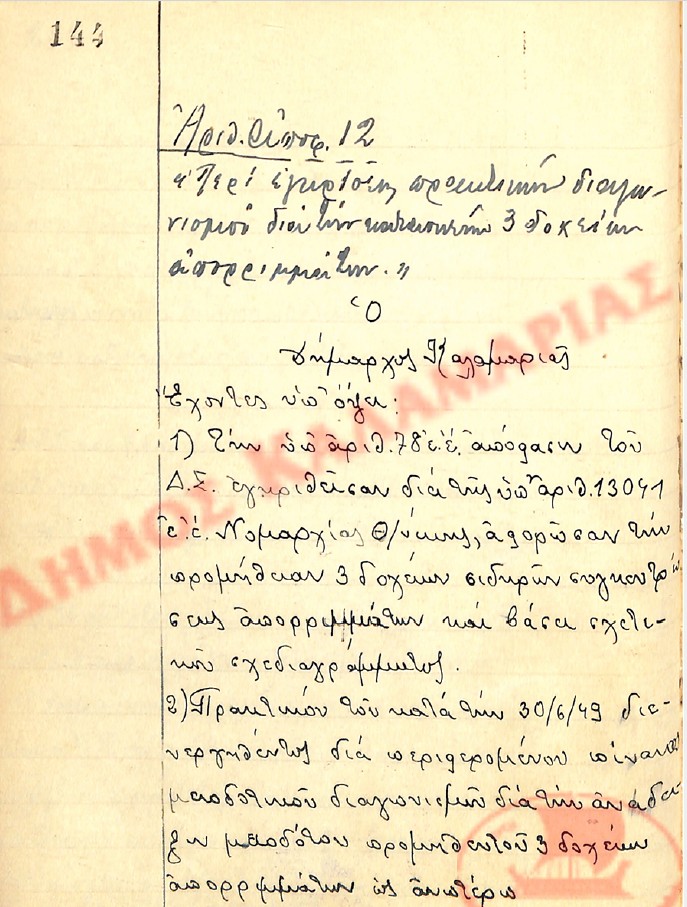 144
Ἀριθ. Ἀποφ. 12
"Περὶ ἐγκρίσεως πρακτικῶν διαγω-
νισμοῦ διὰ τὴν κατασκευὴν 3 δοχείων
ἀπορριμμάτων."
Ὁ
Δήμαρχος Καλαμαριᾶς
Ἔχοντες ὑπ' ὄψει:
1) Τὴν ὑπ' ἀριθ. 78 ἐ.ἔ. ἀπόφασιν τοῦ
Δ.Σ. ἐγκριθεῖσαν διὰ τῆς ὑπ' ἀριθ. 13041
ἐ.ἔ. Νομαρχίας Θ/νίκης, ἀφορῶσαν τὴν
προμήθειαν 3 δοχείων σιδηρῶν συγκεντρώ
σεως ἀπορριμμάτων καὶ βάσει σχετι-
κοῦ σχεδιαγράμματος.
2) Πρακτικὸν τοῦ κατὰ τὴν 30/6/49 διε-
νεργηθέντος διὰ περιφερομένου πίνακος
μειοδοτικοῦ διαγωνισμοῦ διὰ τὴν ἀνάδει-
ξιν μειοδότου προμηθευτοῦ 3 δοχείων
ἀπορριμμάτων ὡς ἀνωτέρω
ΔΗΜΟΣ ΚΑΛΑΜΑΡΙΑΣ